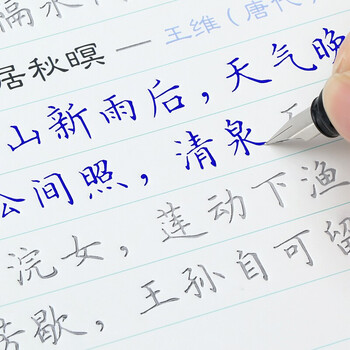 隔水
居秋暝 — 王维（唐代）
山新雨后，天气晚
间照，清泉
浣女，莲动下渔
歇，王孙自可留